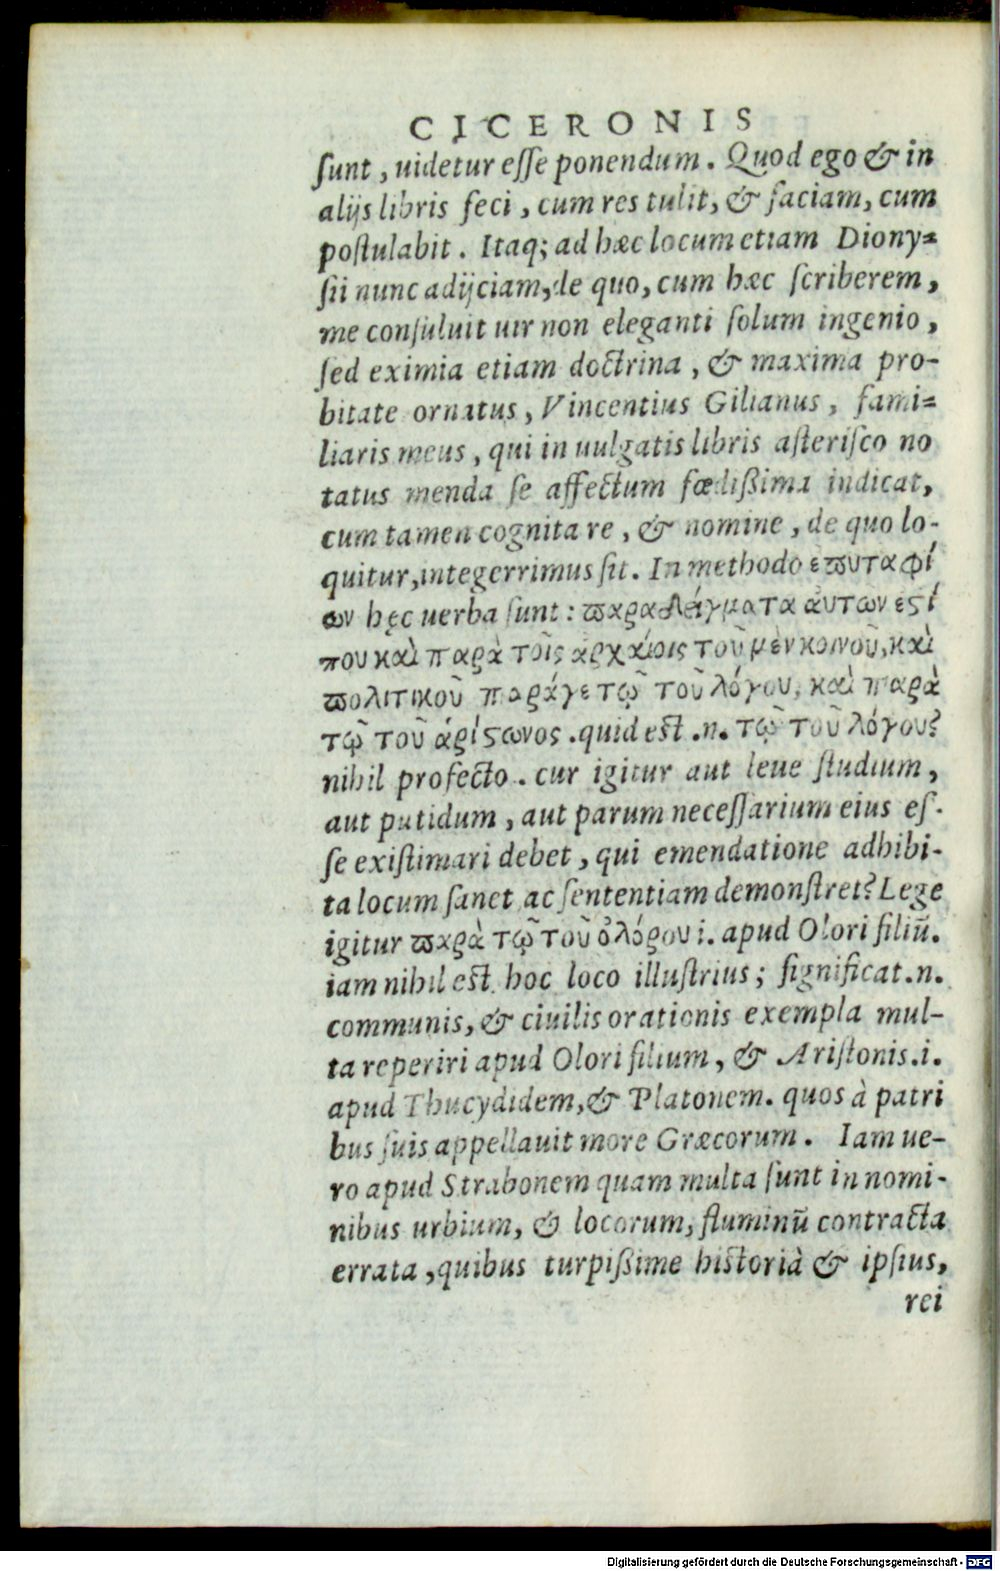 CICERONIS
ſunt, uidetur eſſe ponendum. Quod ego & in
alijs libris feci, cum res tulit, & faciam, cum
poſtulabit. Itaq; ad hæc locum etiam Diony=
ſii nunc adijciam, de quo, cum hæc ſcriberem,
me conſuluit uir non eleganti ſolum ingenio,
ſed eximia etiam doctrina, & maxima pro-
bitate ornatus, Vincentius Gilianus, fami=
liaris meus, qui in uulgatis libris aſteriſco no
tatus menda ſe affectum fœdißima indicat,
cum tamen cognita re, & nomine, de quo lo-
quitur, integerrimus ſit. In methodo επυταφί
ων hęc uerba ſunt: παραδείγματα ἀυτων εςί
που καὶ παρὰ τοῖς ἀρχαίοις τοῦ μὲν κοινοῦ, καὶ
πολιτικοῦ παράγε τῷ τοῦ λόγου, καὶ παρὰ
τῷ τοῦ ἀρίςωνος. quid eſt .n. τῷ τοῦ λόγου?
nihil profecto. cur igitur aut leue ſtudium,
aut putidum, aut parum neceſſarium eius eſ-
ſe exiſtimari debet, qui emendatione adhibi-
ta locum ſanet ac ſententiam demonſtret? Lege
igitur παρὰ τῷ τοῦ ὀλόρου i. apud Olori filiū.
iam nihil eſt hoc loco illuſtrius; ſignificat .n.
communis, & ciuilis orationis exempla mul-
ta reperiri apud Olori filium, & Ariſtonis .i.
apud Thucydidem, & Platonem. quos à patri
bus ſuis appellauit more Græcorum. Iam ue-
ro apud Strabonem quam multa ſunt in nomi-
nibus urbium, & locorum, fluminū contracta
errata, quibus turpißime hiſtoria & ipſius,
rei
Digitalisierung gefördert durch die Deutsche Forschungsgemeinschaft - DFG